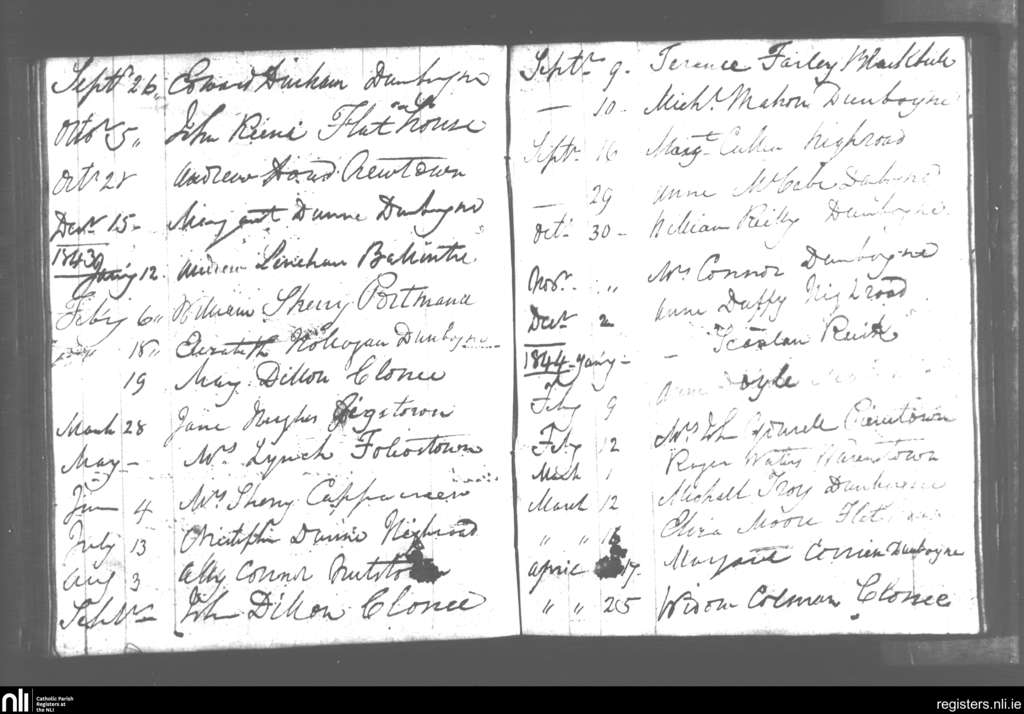 Septr 26 Edward Durham Dunboyne
Octbr 5 John Flat house
Octr 28 Andrew Crewtown
Decr 15 Margaret Dunne Dunboyne
1843
Jany 12 Andrew Linehan Ballintre
Feby 6 William Sherry Portmana
18 Elizabeth Dunboyne
19 Mary Dillon Clonee
March 28 Jane Hughes
May Mrs Lynch
June 4 Mrs Sherry
July 13 Christopher Dunne Highroad
Aug 3 Ally Connor
Septr John Dillon Clonee
Septr 9 Terence Farley Blackbull
10 Michl Mahon Dunboyne
Septr 16 Margt Cullen highroad
29 Anne McCabe
Octr 30 William Reilly Dunboyne
Novr " Mrs Connor Dunboyne
Decr 2 Anne Duffy Highroad
1844 Jany Scanlan
Feby 9 Anne Doyle
Feby 12 Mrs
March 1 Roger Waters Warenstown
March 12 Michael Troy Dunboyne
" " 16 Eliza Moore Flat
April 17 Margaret Dunboyne
" " 25 Widow Colman Clonee
nli Catholic Parish
Registers at
the NLI
registers.nli.ie